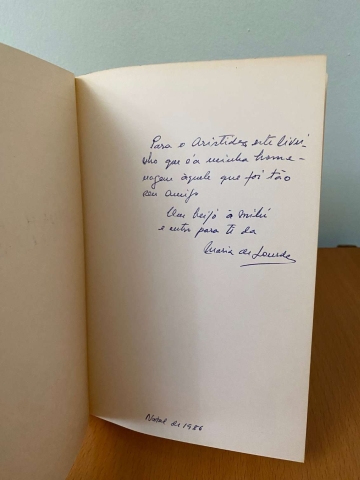 Para o Aristides este livri-
nho que é a minha home-
nagem àquele que foi tão
seu amigo
Um beijo à Mimi
e outro para ti da
Maria de Lourdes
Natal de 1986